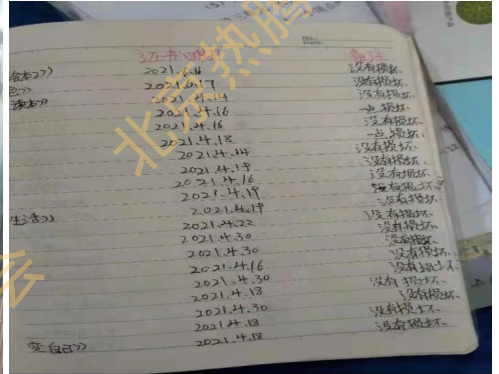 备注
绘本》 2021.4.16 没有损坏、
2021.4.17 没有损坏、
2021.4.14 没有损坏、
2021.4.16 一点损坏、
2021.4.16 没有损坏、
2021.4.18 一点损坏、
2021.4.14 没有损坏、
2021.4.19 没有损坏、
2021.4.16 没有损坏、
2021.4.19 没有损坏、
2021.4.19 没有损坏、
生活》 2021.4.22 没有损坏、
2021.4.30 没有损坏、
2021.4.30 没有损坏、
2021.4.16 没有损坏、
2021.4.30 没有损坏、
2021.4.13 没有损坏、
2021.4.30 没有损坏、
2021.4.18 没有损坏、
变自己》 2021.4.18
北京热腾
会